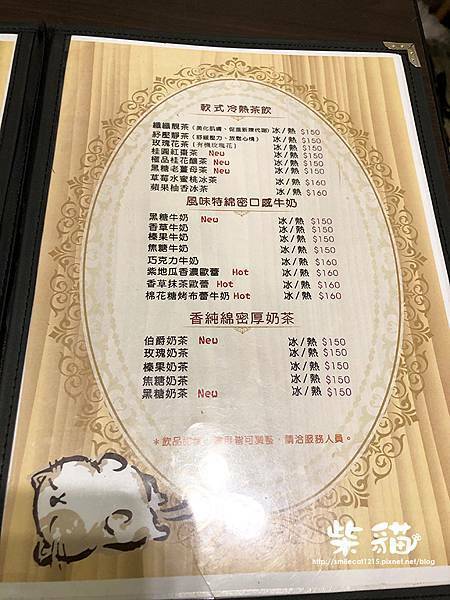 軟式冷熱茶飲
纖纖靚茶 (美化肌膚、促進新陳代謝) 冰/熱 $150
紓壓靜茶 (舒緩壓力、放鬆心情) 冰/熱 $150
玫瑰花茶 (有機玫瑰花) 冰/熱 $150
桂圓紅棗茶 New 冰/熱 $150
極品桂花釀茶 New 冰/熱 $150
黑糖老薑母茶 New 冰/熱 $150
草莓水蜜桃冰茶 冰/熱 $160
蘋果柚香冰茶 冰/熱 $160
風味特綿密口感牛奶
黑糖牛奶 New 冰/熱 $150
香草牛奶 冰/熱 $150
榛果牛奶 冰/熱 $150
焦糖牛奶 冰/熱 $150
巧克力牛奶 冰/熱 $160
紫地瓜香濃歐蕾 Hot 冰/熱 $160
香草抹茶歐蕾 Hot 冰/熱 $160
棉花糖烤布蕾牛奶 Hot 冰/熱 $160
香純綿密厚奶茶
伯爵奶茶 New 冰/熱 $150
玫瑰奶茶 冰/熱 $150
榛果奶茶 冰/熱 $150
焦糖奶茶 冰/熱 $150
黑糖奶茶 New 冰/熱 $150
*飲品 皆可調整，請洽服務人員。
柴貓
http://smilecat1215.pixnet.net/blog